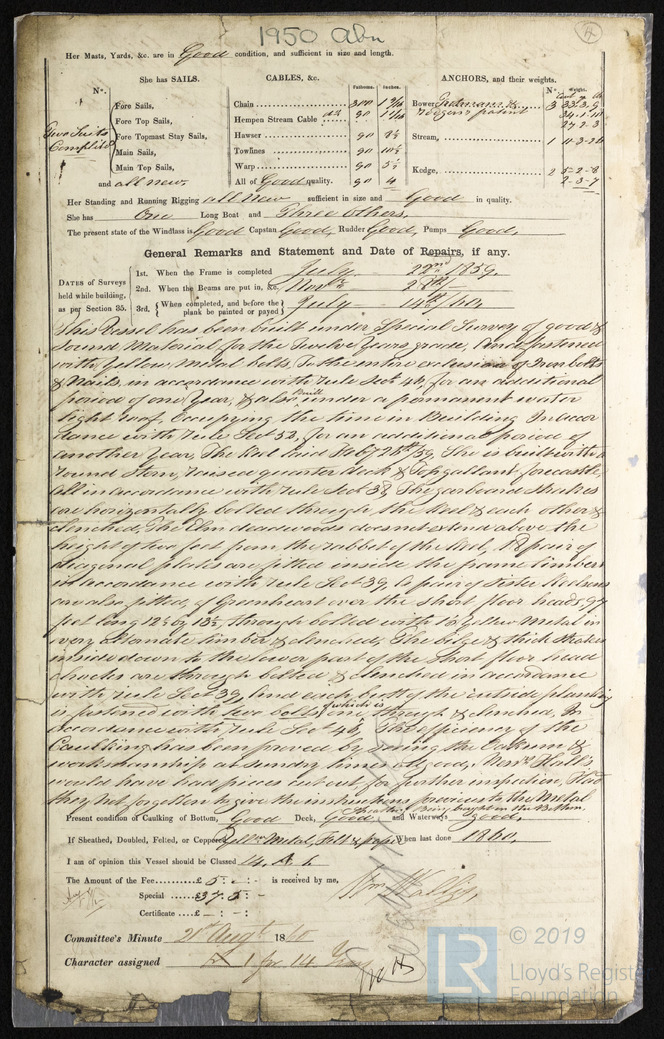 1950 Abn
Her Masts, Yards, &c. are in Good condition, and sufficient in size and length.
She has SAILS. CABLES, &c. ANCHORS, and their weights.
N°. Fathoms. Inches. N°. Weight.
Fore Sails, Chain 300 Bower 3 33.3.9
Fore Top Sails, Hempen Stream Cable 90 patent 34.1.10
Two Suits Fore Topmast Stay Sails, Hawser 90 Stream, 1
Complete Main Sails, Towlines 90
Main Top Sails, Warp 90 Kedge, 2 5-2-8
and all new. All of Good quality. 90 4 2-3-7
Her Standing and Running Rigging all New sufficient in size and Good in quality.
She has One Long Boat and Three others,
The present state of the Windlass is Good Capstan Good, Rudder Good, Pumps Good,
General Remarks and Statement and Date of Repairs, if any.
DATES of Surveys held while building, as per Section 35.
1st. When the Frame is completed July 22nd /1859.
2nd. When the Beams are put in, &c. Novr 28th
3rd. When completed, and before the plank be painted or payed July 14th /60.
This Vessel has been built under Special Survey of good &
Sound Material for the Twelve Years grade, and fastened
with Yellow Metal bolts, To the entire exclusion of Iron bolts
& Nails, in accordance with rule Sect 46, for an additional
period of one Year, & also Built under a permanent water
tight roof, Occupying the time in Building In accor
dance with rule Sect 53, for an additional period of
another Year, The Keel laid Feby 28th /59, She is built with a
round Stern, raised quarter deck & Topgallant forecastle,
all in accordance with rule Sect 38, The garboard Strakes
are horizontally bolted through, the Keel & each other &
clenched, The Elm deadwoods does not extend above the
height of two feet from the rabbet of the Keel, pair of
diagonal plates are fitted inside the frame timbers
in accordance with rule Sect 39, A pair of Sister Keelsons
are also fitted of Greenheart over the short floor heads 97
feet long through bolted with Yellow Metal in
every alternate timber & clenched, The bilge & thick strakes
inside down to the lower part of the Short floor head
strakes are through bolted & clenched in accordance
with rule Sect 39, and each butt of the outside planking
is fastened with two bolts one of which is through & clenched, In
accordance with rule Sect 46, The efficiency of the
Caulking has been proved by the Oakum &
workmanship at sundry times & good, Messrs Hall's
would have had pieces cut out for further inspection, Had
they not forgotten to give the instructions previous to the Metal
Sheathing being brought on the Bottom.
Present condition of Caulking of Bottom, Good Deck, Good and Waterways good,
If Sheathed, Doubled, Felted, or Coppered Yellow Metal, Felt & paper When last done 1860,
I am of opinion this Vessel should be Classed 14 A 1
The Amount of the Fee £ 5 : - : - is received by me,
Special £ 37. 5 : - Wm Wallis,
Certificate £ - : - :
Committee's Minute 21st Augt 1860
Character assigned A 1 for 14 Years
© 2019
LR
Lloyd's Register
Foundation